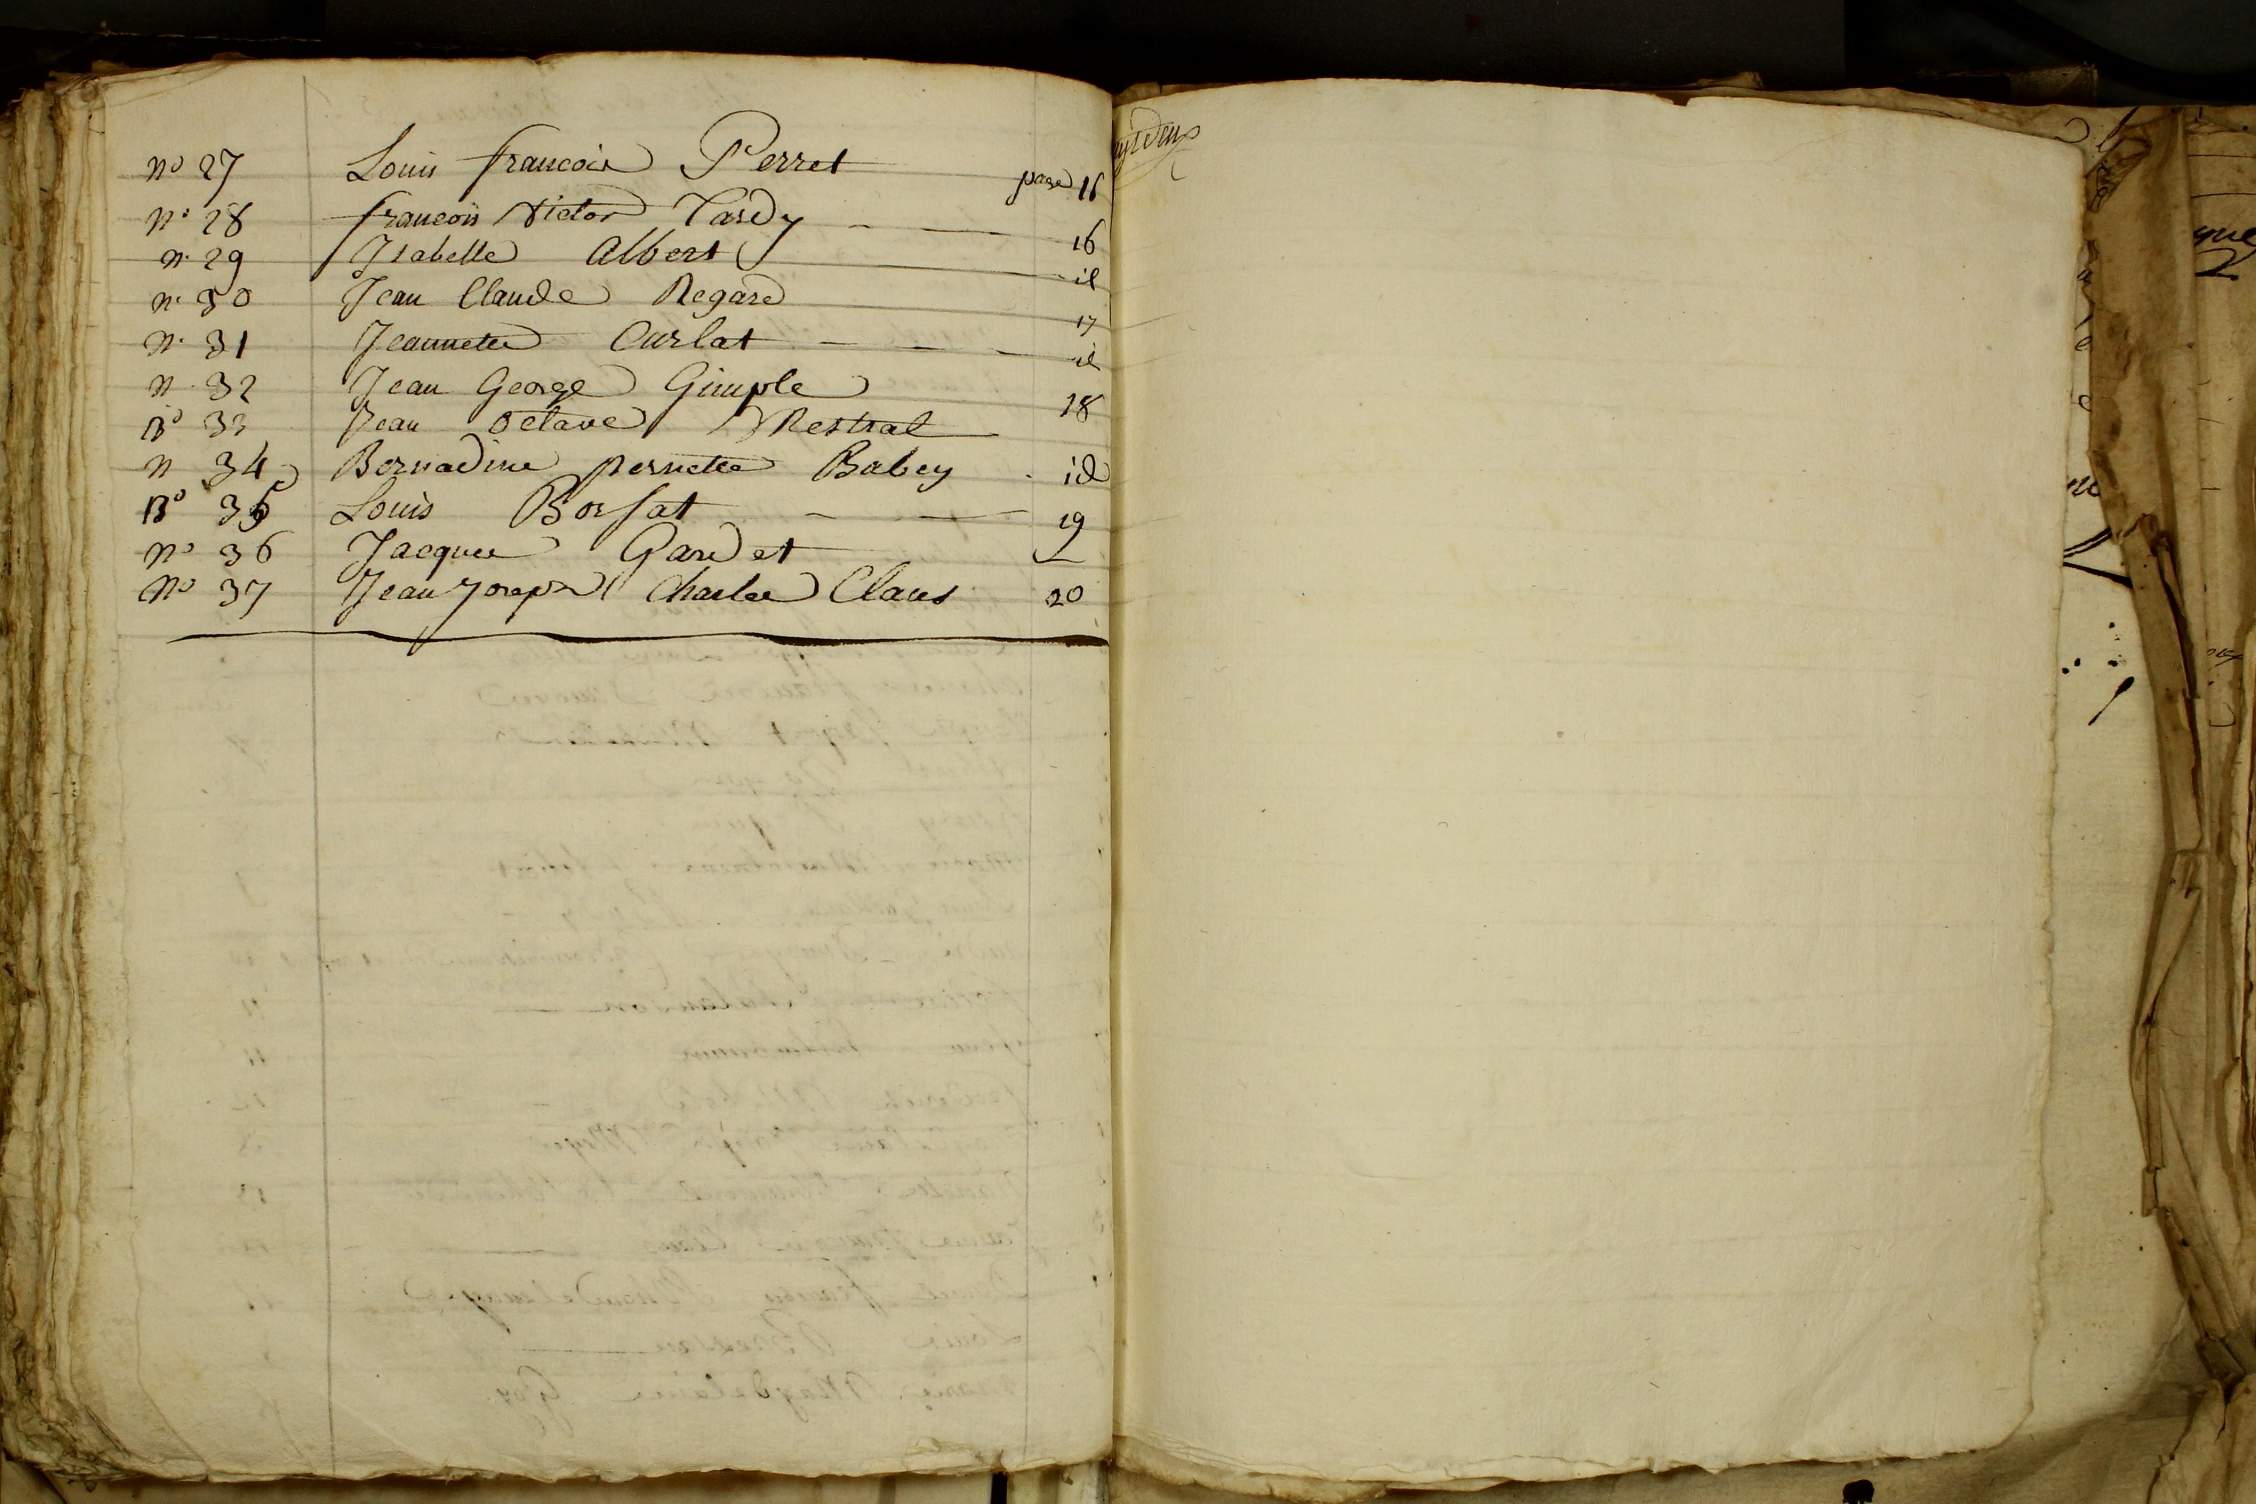 no 27 Louis francois Perret page 16
no 28 francois Victor Tardy 16
n. 29 Isabelle Albert id
n. 30 Jean Claude Regard 17
n. 31 Jeannette Carlat id
n. 32 Jean George Gimple 18
no 33 Jean Octave Mestral
n 34 Bernadine pernette Babey id
no 35 Louis Borsat 19
no 36 Jacques Gardet
No 37 Jean Joseph Charles Claus 20